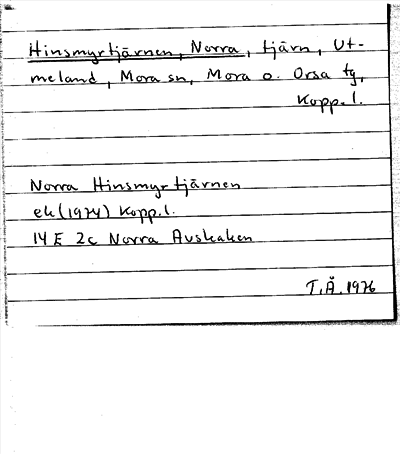 Hinsmyrtjärnen, Norra, tjärn, Ut-
meland, Mora sn, Mora o. Orsa tg,
Kopp. l.
Norra Hinsmyrtjärnen
ek (1974) Kopp. l.
14 E 2c Norra Avskaken
T.Å. 1976